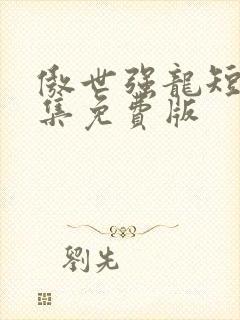 傲世强龍短
集免費版
劉先